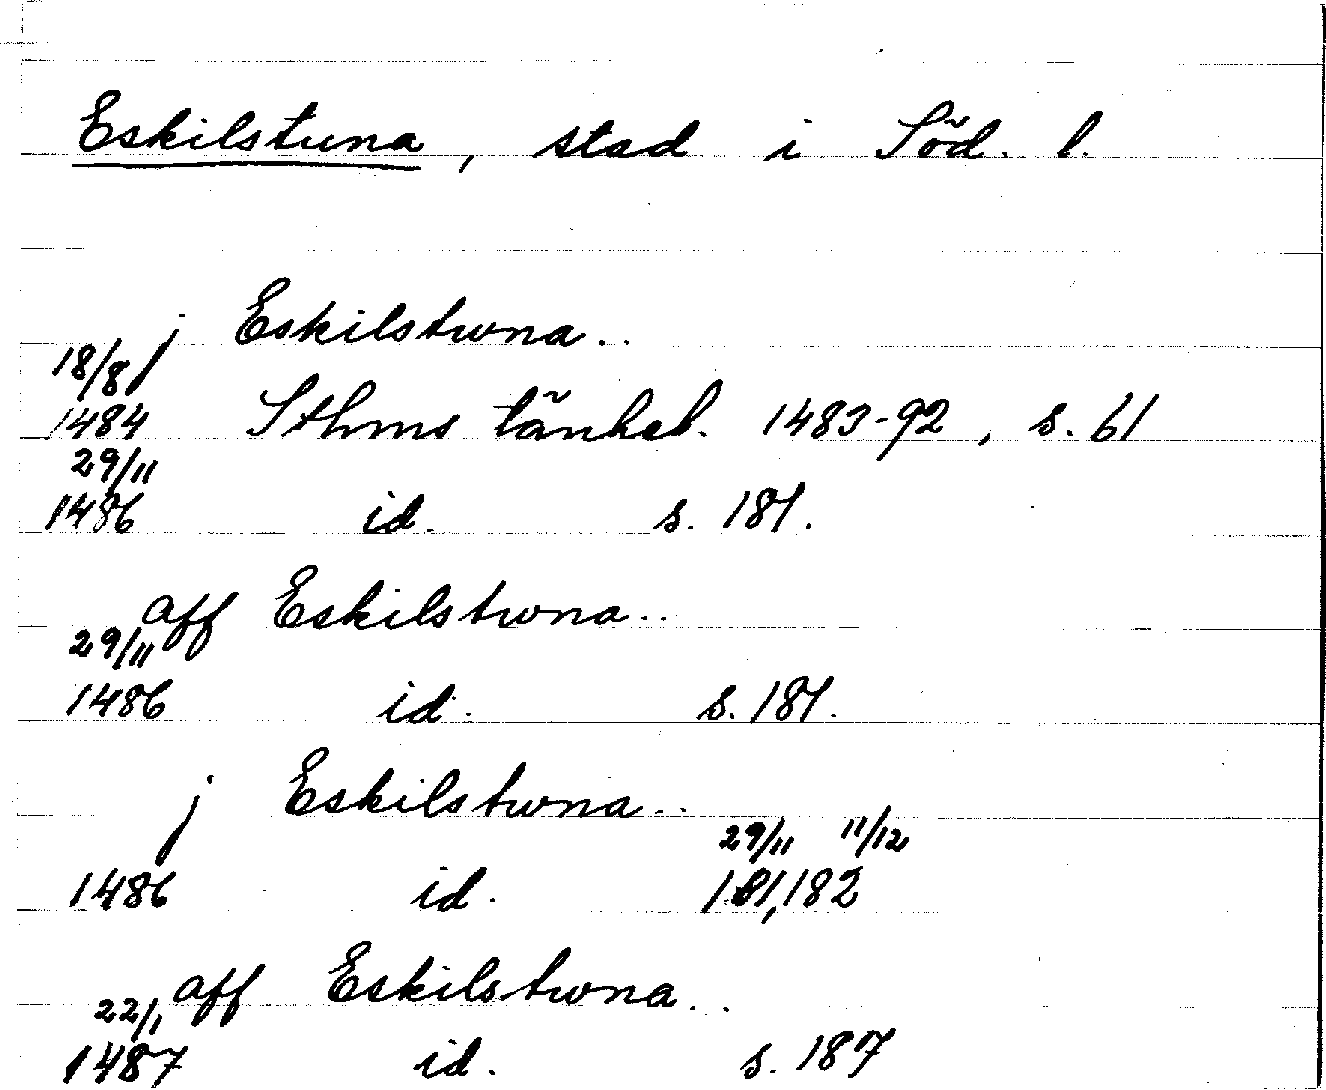 Eskilstuna, stad i Söd. l.
j Eskilstwna..
18/8
1484 Sthms tänkeb. 1483-92, s. 61
29/11
1486 id. s. 181.
aff Eskilstwna..
29/11
1486 id. s. 181.
j Eskilstwna..
29/11 11/12
1486 id. 181, 182
aff Eskilstwna..
22/1
1487 id. s. 187